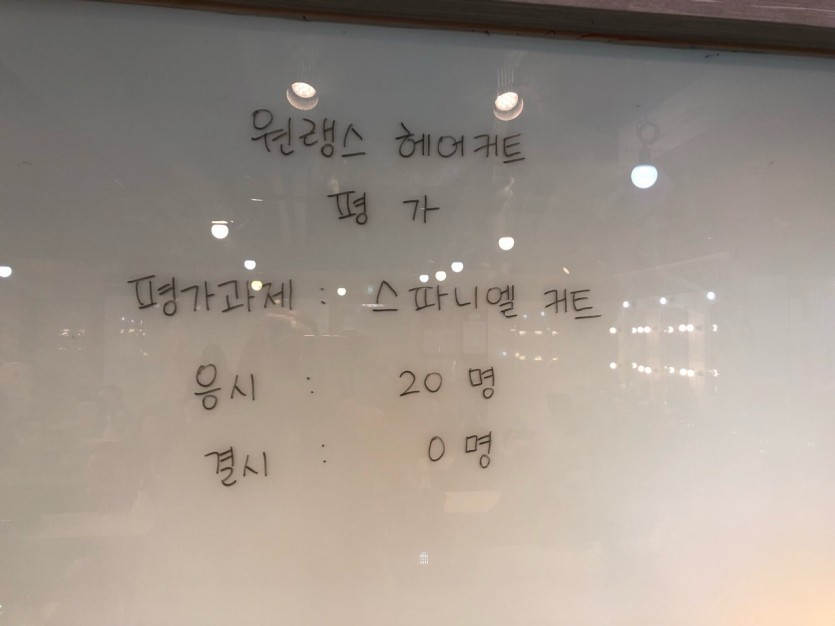 원랭스 헤어커트
평 가
평가과제 : 스파니엘 커트
응시 : 20 명
결시 : 0 명